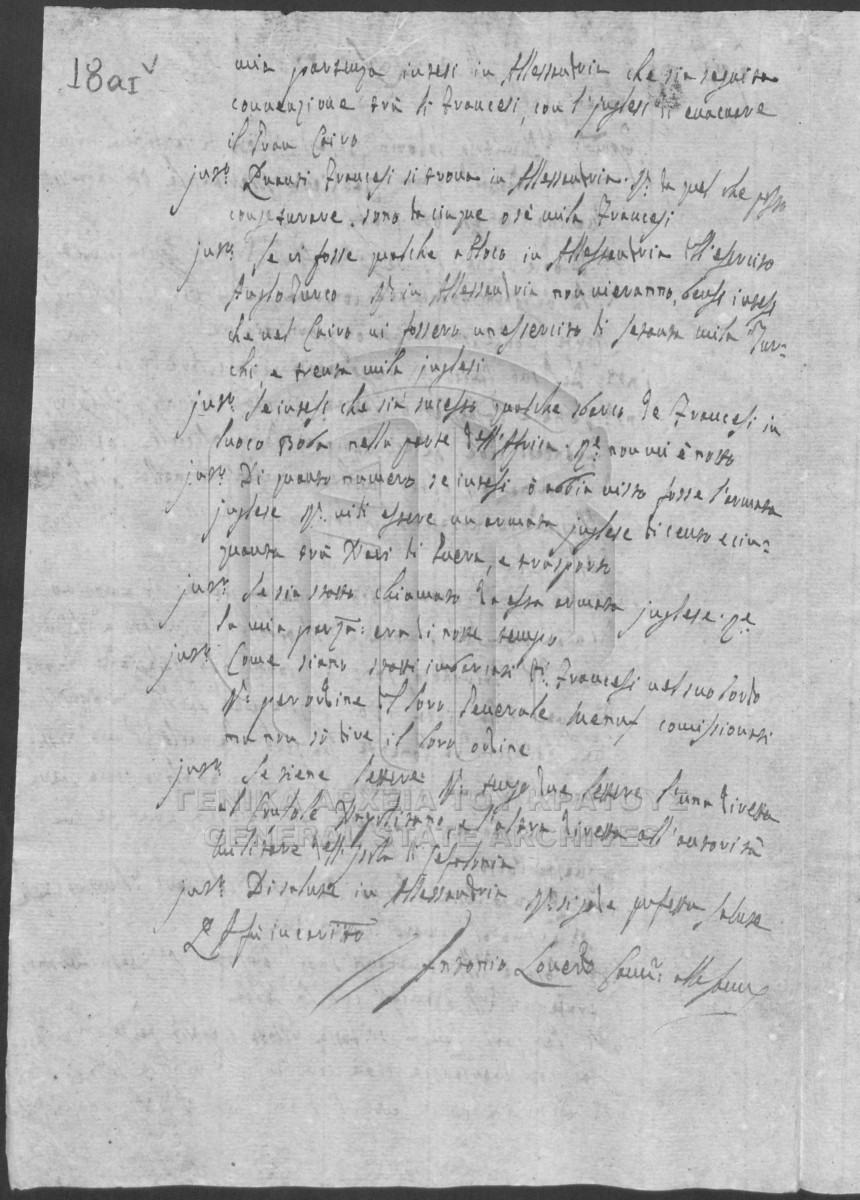 18aI v
mia partenza intesi in Allessandria che sia seguita
convenzione trà li Francesi, con l'Inglesi di evacuare
il Gran Cairo
jntr: Quanti Francesi si trova in Allessandria. Rs: da quel che posso
congeturare. sono da cinque o sè mila Francesi
jntr: Se vi fosse qualche bloco in Allessandria dell'esercito
Anglo Turco Rs: in Allessandria non vieranno, bensi intesi
che nel Cairo vi fossero un essercito di sesanta mila Tur=
chi, e trenta mila jnglesi
jntr: Se intesi che sia sucesso qualche sbarco de Francesi in
luoco nella parte dell'Affrica. Rs: non mi è noto
jntr: Di quanto numero se intesi ò abbia visto fosse l'armata
jnglese Rs: viti essere un armata jnglese di cento e cin=
quanta trà Navi di Guera, e trasporto
jntr: Se sia stato chiamato da essa armata jnglese. Rs:
la mia partza: era di notte tempo
jntr: Come siano stati imbarcati li Francesi nel suo bordo
Rs: per ordine del loro Generale Menuf comissionati
ma non sò dire il loro ordine
jntr: Se tiene lettere Rs: tengo due lettere l'una diretta
al Console Napolitano e l'altra diretta all'autorità
militare dell'Isola di Cefalonia
jntr: Di salute in Allessandria Rs: si gode perfetta salute
Antonio Loverdo
ΓΕΝΙΚΑ ΑΡΧΕΙΑ ΤΟΥ ΚΡΑΤΟΥΣ
GENERAL STATE ARCHIVES